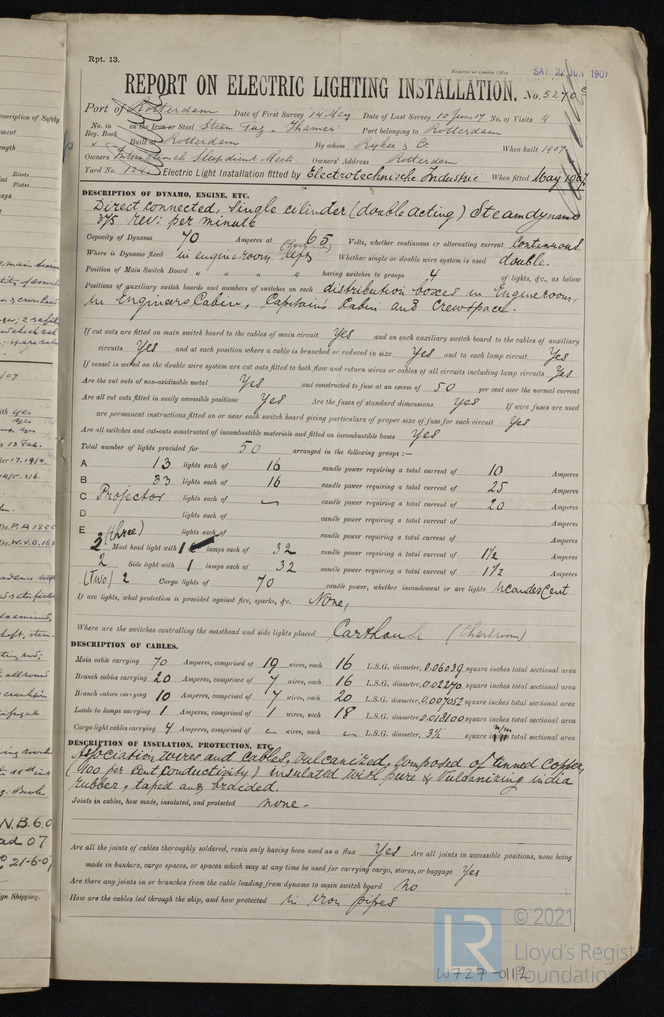 Rpt. 13.
Received at London Office
SAT. 22 JUN 1907
REPORT ON ELECTRIC LIGHTING INSTALLATION. No. 5270
Port of Rotterdam Date of First Survey 14 May Date of Last Survey 10 June 07 No. of Visits 4
No. in Reg. Book on the Iron or Steel Steam Tug "Thames" Port belonging to Rotterdam
Built at Rotterdam By whom Rykee & Co When built 1907
Owners Internationale Sleepdienst Owners' Address Rotterdam
Yard No. 124 Electric Light Installation fitted by Electrotechnische Industrie When fitted May 1907
DESCRIPTION OF DYNAMO, ENGINE, ETC.
Direct connected, single cilinder (double acting) Steamdynamo
375 rev: per minute
Capacity of Dynamo 70 Amperes at 65 Volts, whether continuous or alternating current continuous
Where is Dynamo fixed in engineroom left Whether single or double wire system is used double.
Position of Main Switch Board " " " " having switches to groups 4 of lights, &c., as below
Positions of auxiliary switch boards and numbers of switches on each distribution boxes in Engineroom,
in Engineers Cabin, Captain's Cabin and Crewspace.
If cut outs are fitted on main switch board to the cables of main circuit Yes and on each auxiliary switch board to the cables of auxiliary
circuits Yes and at each position where a cable is branched or reduced in size Yes and to each lamp circuit Yes
If vessel is wired on the double wire system are cut outs fitted to both flow and return wires or cables of all circuits including lamp circuits Yes
Are the cut outs of non-oxidizable metal Yes and constructed to fuse at an excess of 50 per cent over the normal current
Are all cut outs fitted in easily accessible positions Yes Are the fuses of standard dimensions Yes If wire fuses are used
are permanent instructions fitted on or near each switch board giving particulars of proper size of fuse for each circuit Yes
Are all switches and cut-outs constructed of incombustible materials and fitted on incombustible bases Yes
Total number of lights provided for 50 arranged in the following groups :—
A 13 lights each of 16 candle power requiring a total current of 10 Amperes
B 33 lights each of 16 candle power requiring a total current of 25 Amperes
C Projector lights each of candle power requiring a total current of 20 Amperes
D lights each of candle power requiring a total current of Amperes
E lights each of candle power requiring a total current of Amperes
3 (three) Mast head light with 1 lamps each of 32 candle power requiring a total current of 1½ Amperes
2 Side light with 1 lamps each of 32 candle power requiring a total current of 1½ Amperes
(Two) 2 Cargo lights of 70 candle power, whether incandescent or arc lights incandescent
If arc lights, what protection is provided against fire, sparks, &c. None,
Where are the switches controlling the masthead and side lights placed (Chartroom)
DESCRIPTION OF CABLES.
Main cable carrying 70 Amperes, comprised of 19 wires, each 16 L.S.G. diameter, 0.06039 square inches total sectional area
Branch cables carrying 20 Amperes, comprised of 7 wires, each 16 L.S.G. diameter, 0.02270 square inches total sectional area
Branch cables carrying 10 Amperes, comprised of 7 wires, each 20 L.S.G. diameter, 0.007052 square inches total sectional area
Leads to lamps carrying 1 Amperes, comprised of 1 wires, each 18 L.S.G. diameter, 0.018100 square inches total sectional area
Cargo light cables carrying 4 Amperes, comprised of wires, each L.S.G. diameter, 3½ square m/m total sectional area
DESCRIPTION OF INSULATION, PROTECTION, ETC.
Association wires and Cables, Vulcanized, Composed of tinned Copper,
(100 per cent conductivity) insulated with pure & Vulcanizing india
rubber, taped and braided.
Joints in cables, how made, insulated, and protected none -
Are all the joints of cables thoroughly soldered, resin only having been used as a flux Yes Are all joints in accessible positions, none being
made in bunkers, cargo spaces, or spaces which may at any time be used for carrying cargo, stores, or baggage Yes
Are there any joints in or branches from the cable leading from dynamo to main switch board No
How are the cables led through the ship, and how protected in iron pipes
© 2021
LR Lloyd's Register
Foundation
W727-0112